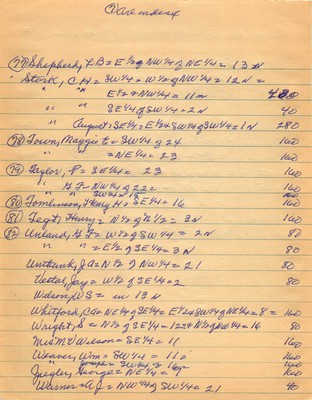 (77) Shepherd, L B = E½ of NW¼ of NE¼ = 13 N
Stork, C H = SW¼ = W½ of NW¼ = 12 N =
" " E½ of NW¼ = 11 480
" " SE¼ of SW¼ = 2 N 40
" August = SE¼ = E½ of SW¼ of SW¼ = 1 N 280
(78) Town, Maggie E = SW¼ of 24 160
" " = NE¼ = 23 160
(79) Taylor, P = SE¼ = 23 160
" G F = NW¼ of 22 = 160
(80) Tomlinson, Henry H = SE¼ = 16 160
(81) Tegt, Henry = N½ of N½ = 3 N 160
(82) Unland, G F = W½ of SW¼ = 2 N 80
" " = E½ of SE¼ = 3 N 80
Unthank, J A = N½ of NW¼ = 21 80
Vestal, Jay = W½ of SE¼ = 2 80
Wilson, W S = 13 N
Whitford, C A = NE¼ of SE¼ = E½ of SW¼ of NE¼ = 8 = 160
Wright, S = N½ of SE¼ = 12 = N½ of NW¼ = 16 80
Wilson = SE¼ = 11 160
Weaver, Wm = SW¼ = 11 = 160
" Joseph = SW¼ = 160
George = NE¼ = 160
Warner = A J = NW¼ of SW¼ = 21 40